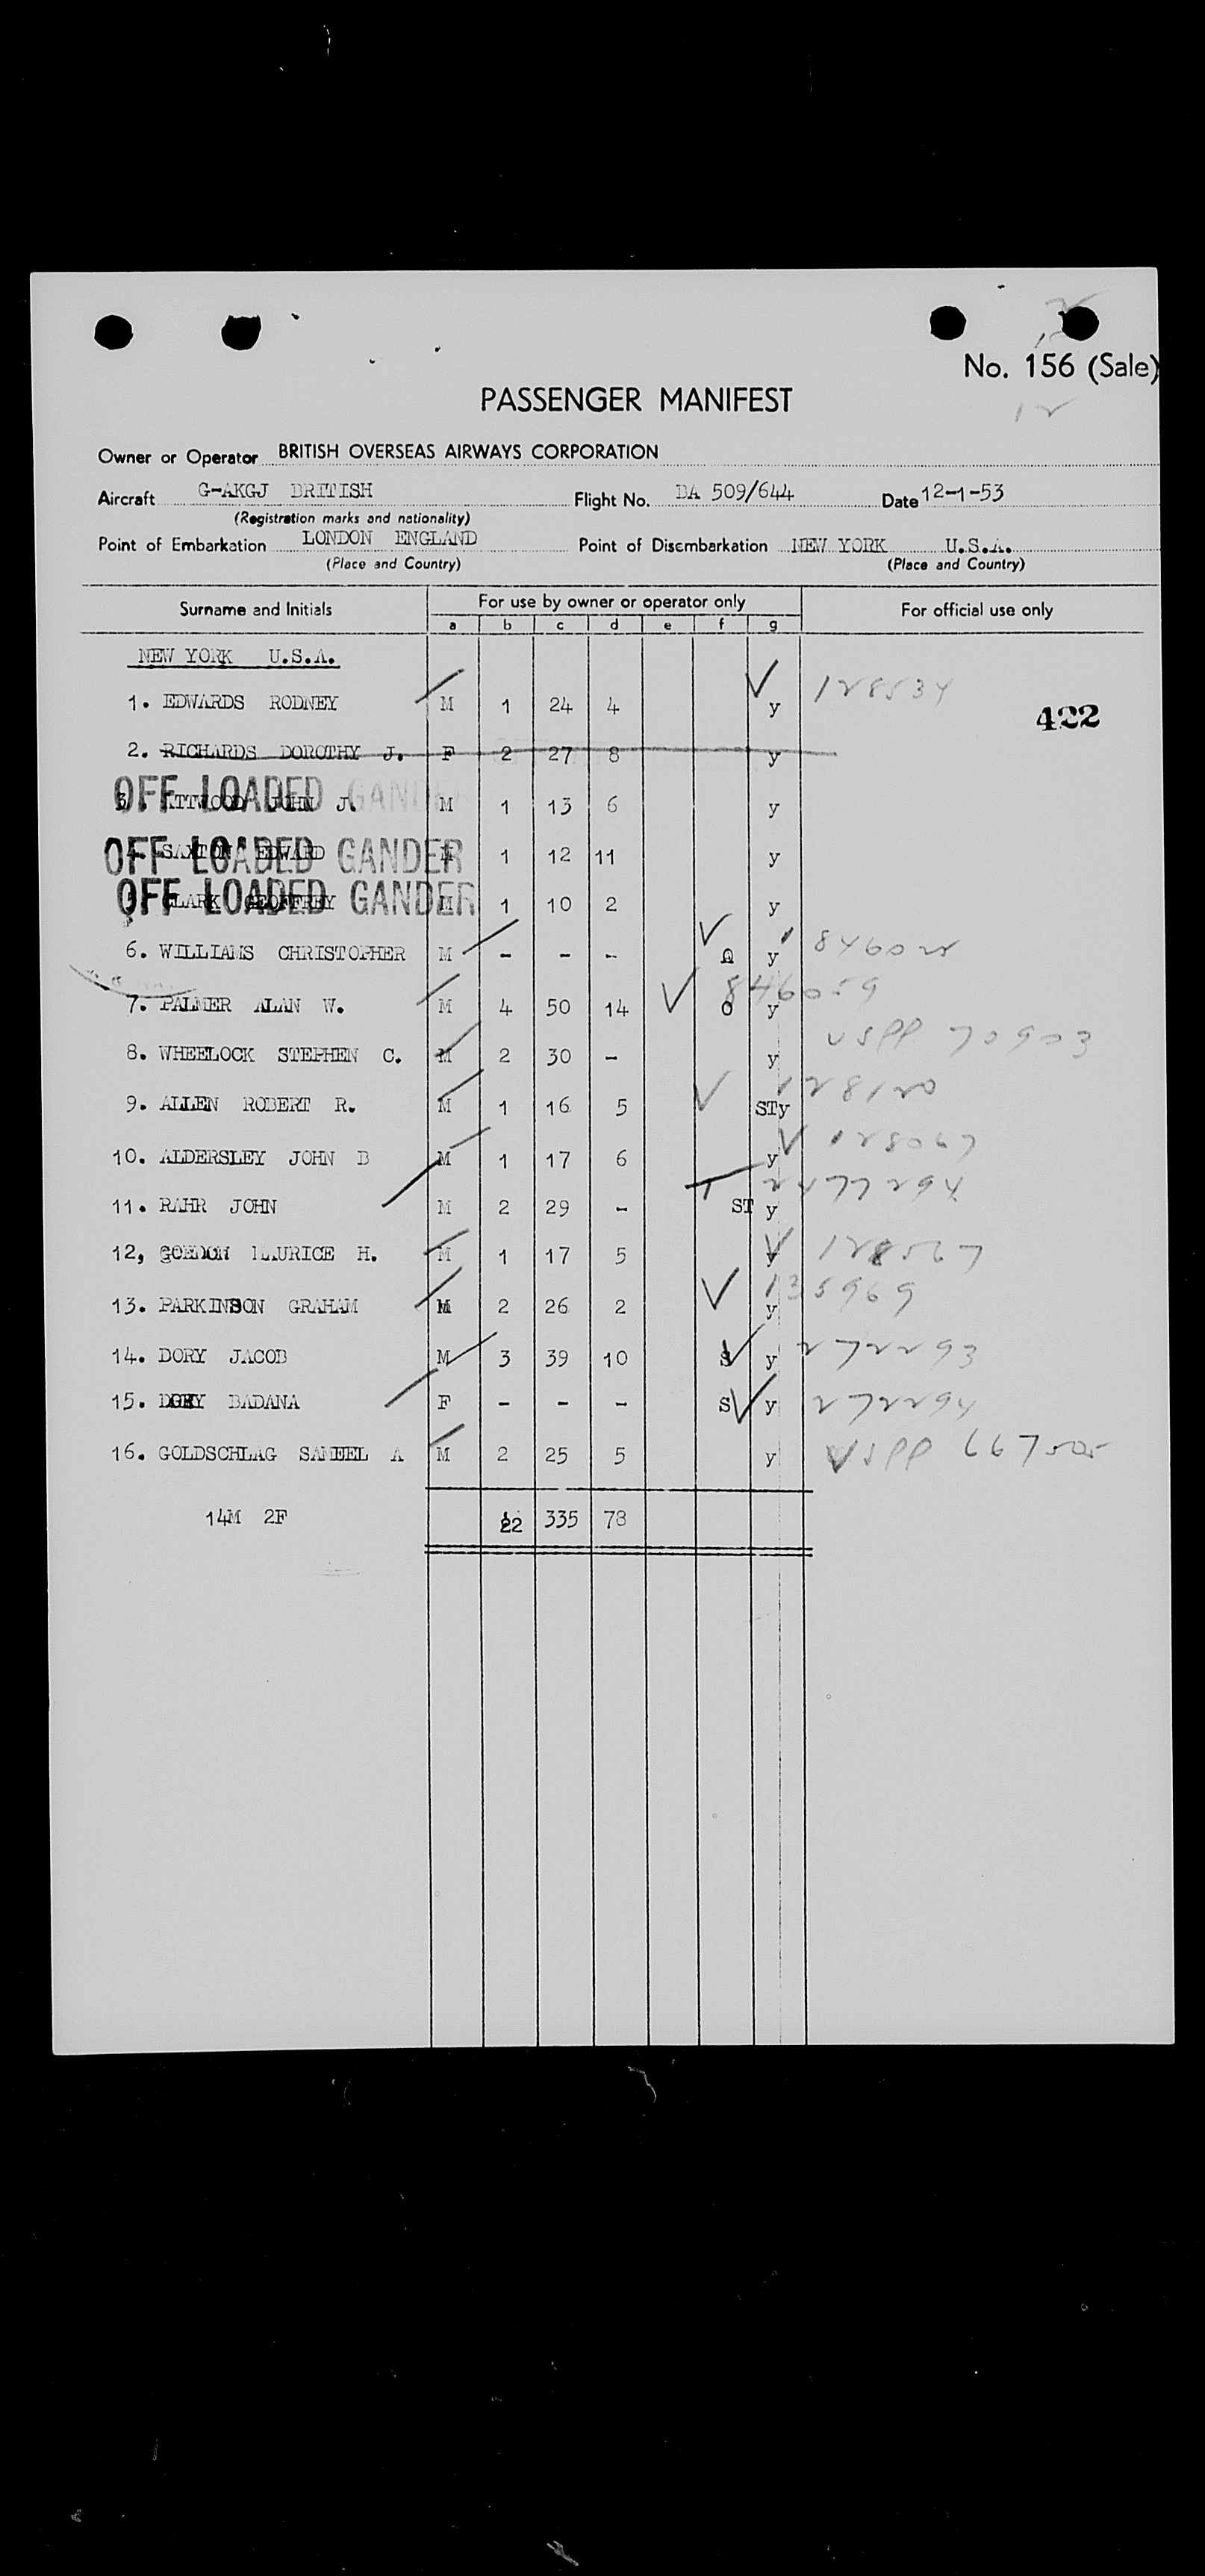 No. 156 (Sale)
PASSENGER MANIFEST
12
Owner or Operator BRITISH OVERSEAS AIRWAYS CORPORATION
Aircraft G-AKGJ BRITISH Flight No. BA 509/644 Date 12-1-53
(Registration marks and nationality)
Point of Embarkation LONDON ENGLAND Point of Disembarkation NEW YORK U.S.A.
(Place and Country) (Place and Country)
Surname and Initials For use by owner or operator only For official use only
a b c d e f g
NEW YORK U.S.A.
1. EDWARDS RODNEY M 1 24 4 y 128534
422
2. RICHARDS DOROTHY J. F 2 27 8 y
OFF LOADED GANDER
3. ATTWOOD JOHN J. M 1 13 6 y
OFF LOADED GANDER
SAXTON EDWARD 1 12 11 y
OFF LOADED GANDER
CLARK GEOFFREY M 1 10 2 y
6. WILLIAMS CHRISTOPHER M - - - y
7. PALMER ALAN W. M 4 50 14 O y 846059
8. WHEELOCK STEPHEN C. M 2 30 - y USPP 70903
9. ALLEN ROBERT R. M 1 16 5 STy 128120
10. ALDERSLEY JOHN B M 1 17 6 y 128067
11. RAHR JOHN M 2 29 - ST y 2477294
12, GORDON MAURICE H. M 1 17 5 y 128567
13. PARKINSON GRAHAM M 2 26 2 y 135969
14. DORY JACOB M 3 39 10 S y 272293
15. DORY BADANA F - - - S y 272294
16. GOLDSCHLAG SAMEEL A M 2 25 5 y USPP
14M 2F 22 335 78